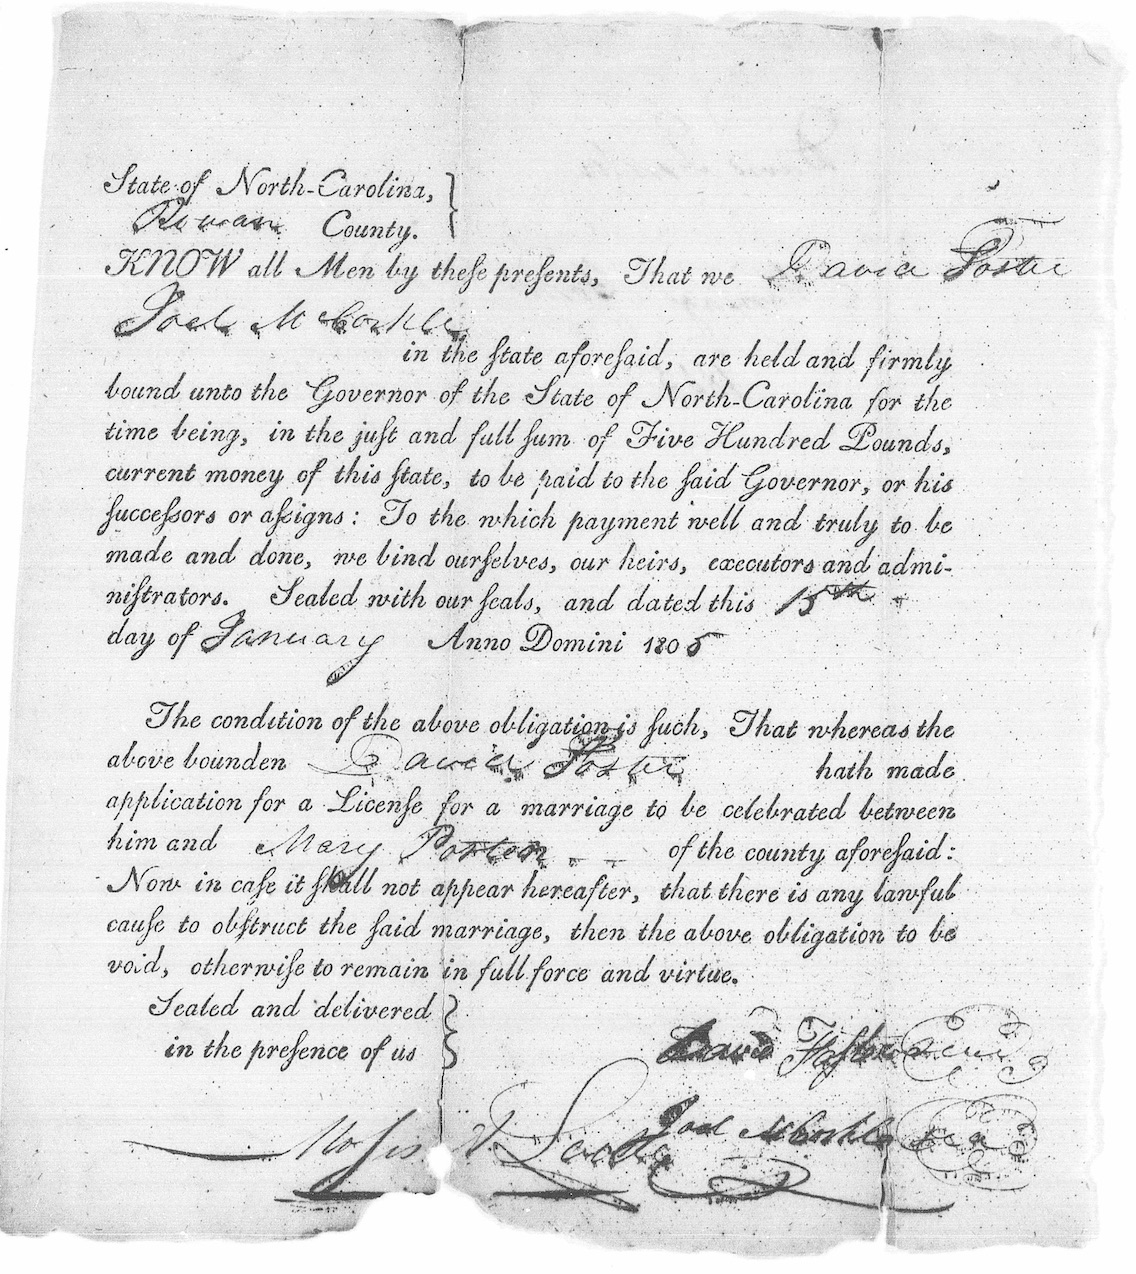 State of North-Carolina,
Rowan County.
KNOW all Men by theſe preſents, That we David Foster
Joel McCorkle
in the ſtate aforeſaid, are held and firmly
bound unto the Governor of the State of North-Carolina for the
time being, in the juſt and full ſum of Five Hundred Pounds,
current money of this ſtate, to be paid to the ſaid Governor, or his
ſucceſsors or aſsigns: To the which payment well and truly to be
made and done, we bind ourſelves, our heirs, executors and admi-
niſtrators. Sealed with our ſeals, and dated this 15th
day of January Anno Domini 1805
The condition of the above obligation is ſuch, That whereas the
above bounden David Foster hath made
application for a Licenſe for a marriage to be celebrated between
him and Mary Porter of the county aforeſaid:
Now in caſe it ſhall not appear hereafter, that there is any lawful
cauſe to obſtruct the ſaid marriage, then the above obligation to be
void, otherwiſe to remain in full force and virtue.
Sealed and delivered
in the preſence of us
David Foſter Seal
Joel McCorkle Seal
Moſes A. Locke